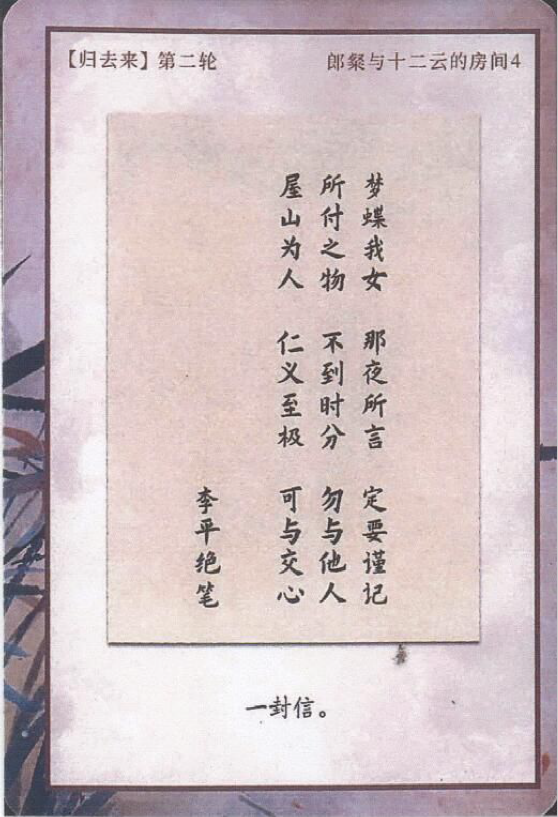 【归去来】第二轮
郎粲与十二云的房间4
梦蝶我女 那夜所言 定要谨记
所付之物 不到时分 勿与他人
屋山为人 仁义至极 可与交心
李平绝笔
一封信。